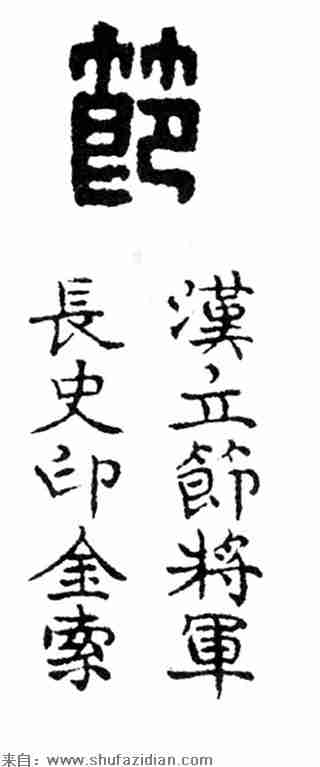 節
漢立節將軍
長史印金索
来自：www.shufazidian.com